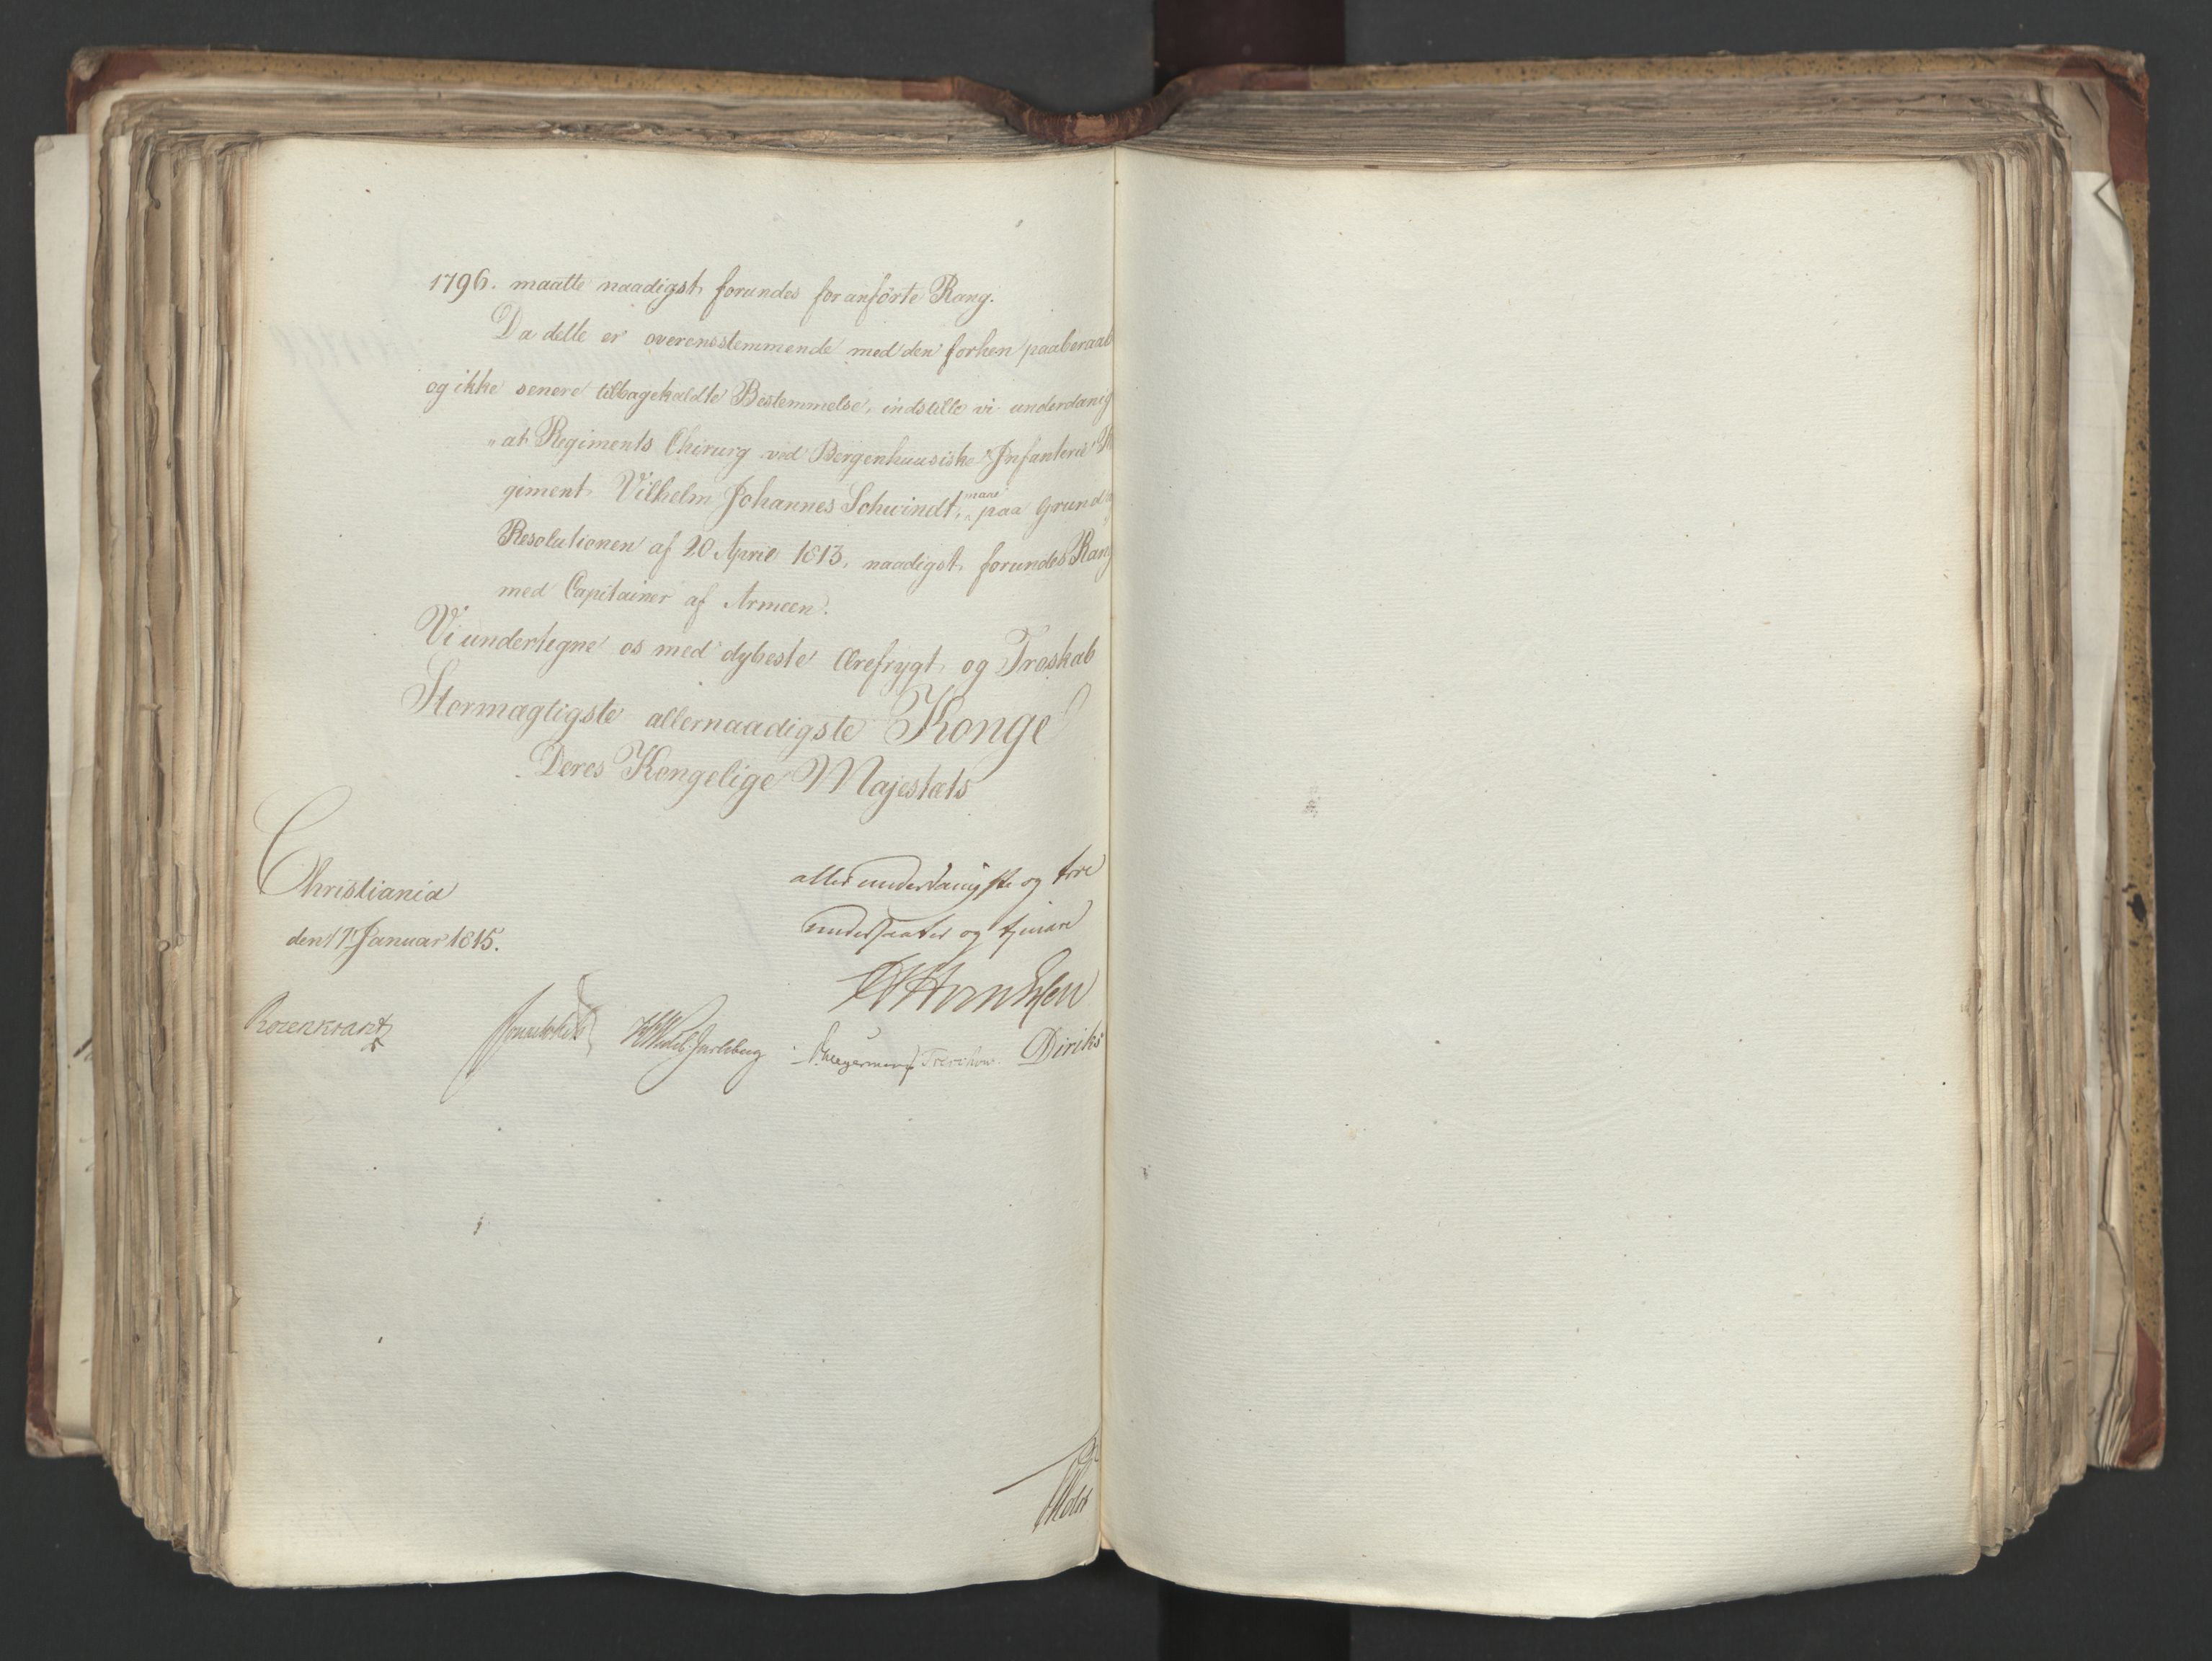 1796. maatte naadigst forundes foranførte Rang.
Da dette er overensstemmende med den forhen paaberaab
og ikke senere tilbagekaldte Bestemmelse, indstille vi underdanig
„at Regiments Chirurg ved Bergenhuusiske Infanterie
giment Vilhelm Johannes Schwindt, paa Grund
Resolutionen af 20 April 1813, naadigst forundes Rang
med Capitainer af Armeen.
Vi undertegne os med dybeste Ærefrygt og Troskab
Stormægtigste allernaadigste Konge
Deres Kongelige Majestæts
Christiania
den 17 Januar 1815.
allerunderdanigste og troe
undersaatter og tjenere
Rosenkrantz
Sommerhielm
Wedel Jarlsberg
Hegermann
Treschow
Diriks
Holst